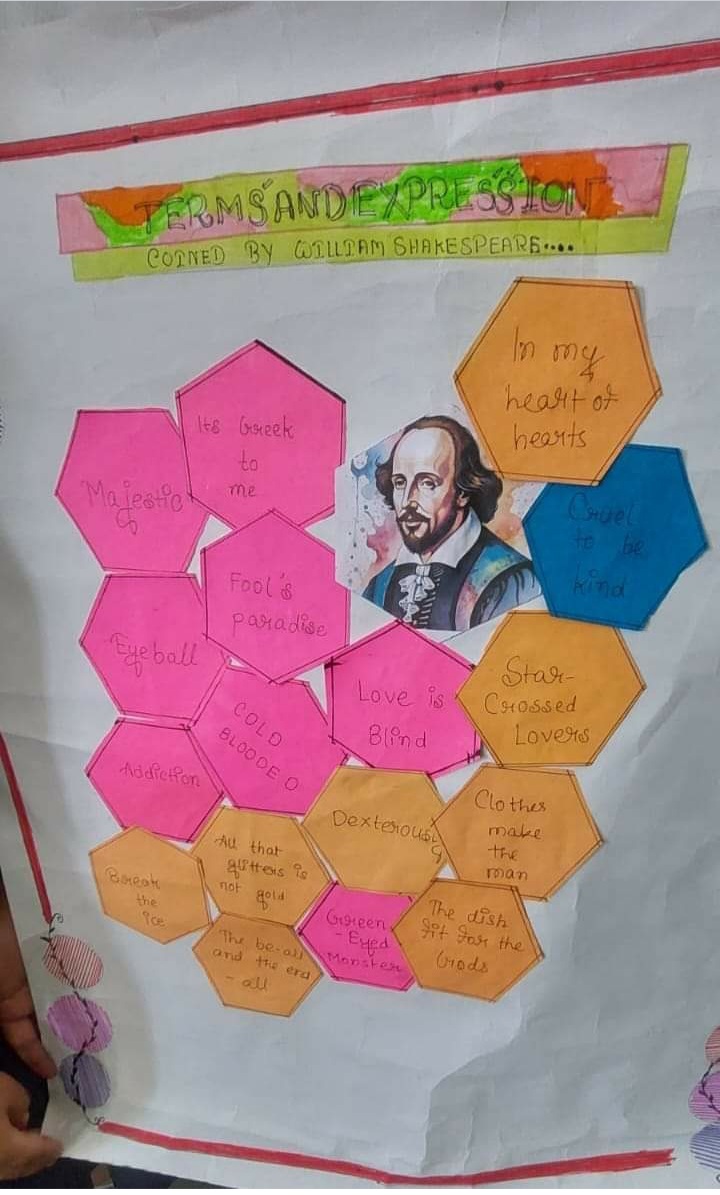 TERMS AND EXPRESSION
COINED BY WILLIAM SHAKESPEARE....
In my
heart of
hearts
Its Greek
to
me
Majestic
Cruel
to be
kind
Fool's
paradise
Eyeball
Love is
Blind
Star-
Crossed
Lovers
COLD
BLOODED
Addiction
Dexterously
Clothes
make
the
man
All that
glitters is
not gold
Break
the
ice
Green
-Eyed
Monster
The dish
fit for the
Gods
The be-all
and the end
-all